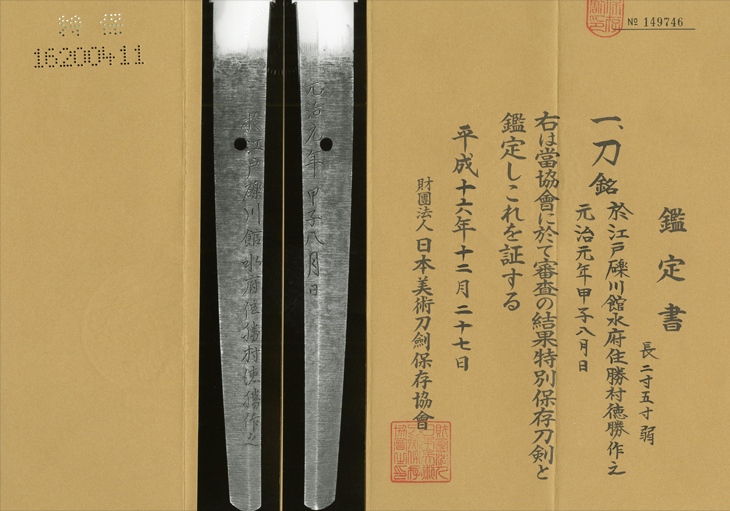 № 149746
鑑定書
長 二尺五寸弱
一、刀 銘 於江戸礫川館水府住勝村徳勝作之
元治元年甲子八月日
右は當協會に於て審査の結果特別保存刀剣と
鑑定しこれを証する
平成十六年十二月二十七日
財團法人 日本美術刀剣保存協會
元治元年甲子八月日
於江戸礫川館水府住勝村徳勝作之
16200411